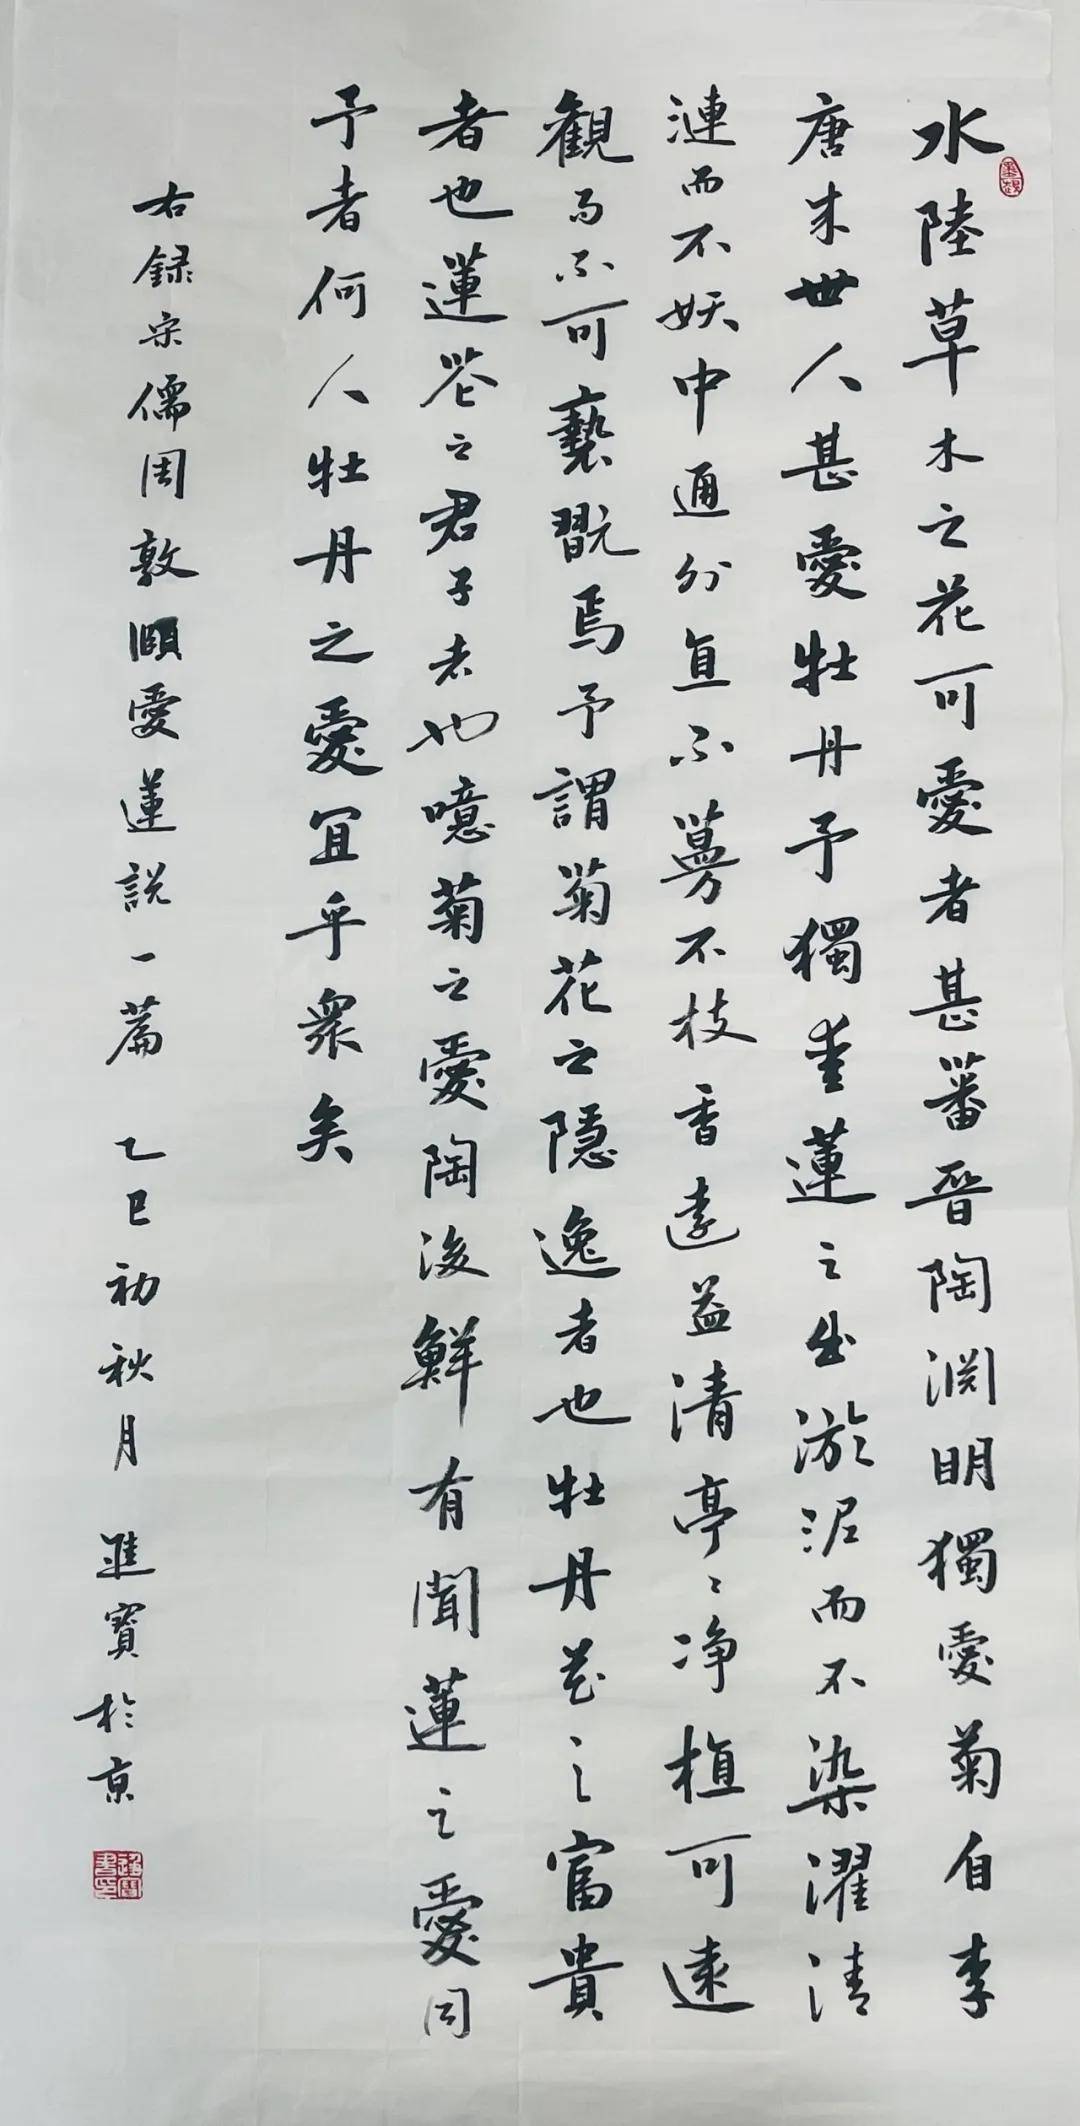 水陸草木之花可愛者甚蕃晉陶渊明獨愛菊自李
唐来世人甚愛牡丹予獨愛蓮之出淤泥而不染濯清
漣而不妖中通外直不蔓不枝香遠益清亭〻净植可遠
觀而不可褻翫焉予謂菊花之隱逸者也牡丹花之富貴
者也蓮花之君子者也噫菊之愛陶後鮮有聞蓮之愛同
予者何人牡丹之愛宜乎衆矣
右録宋儒周敦頤愛蓮説一篇 乙巳初秋月 進寳於京